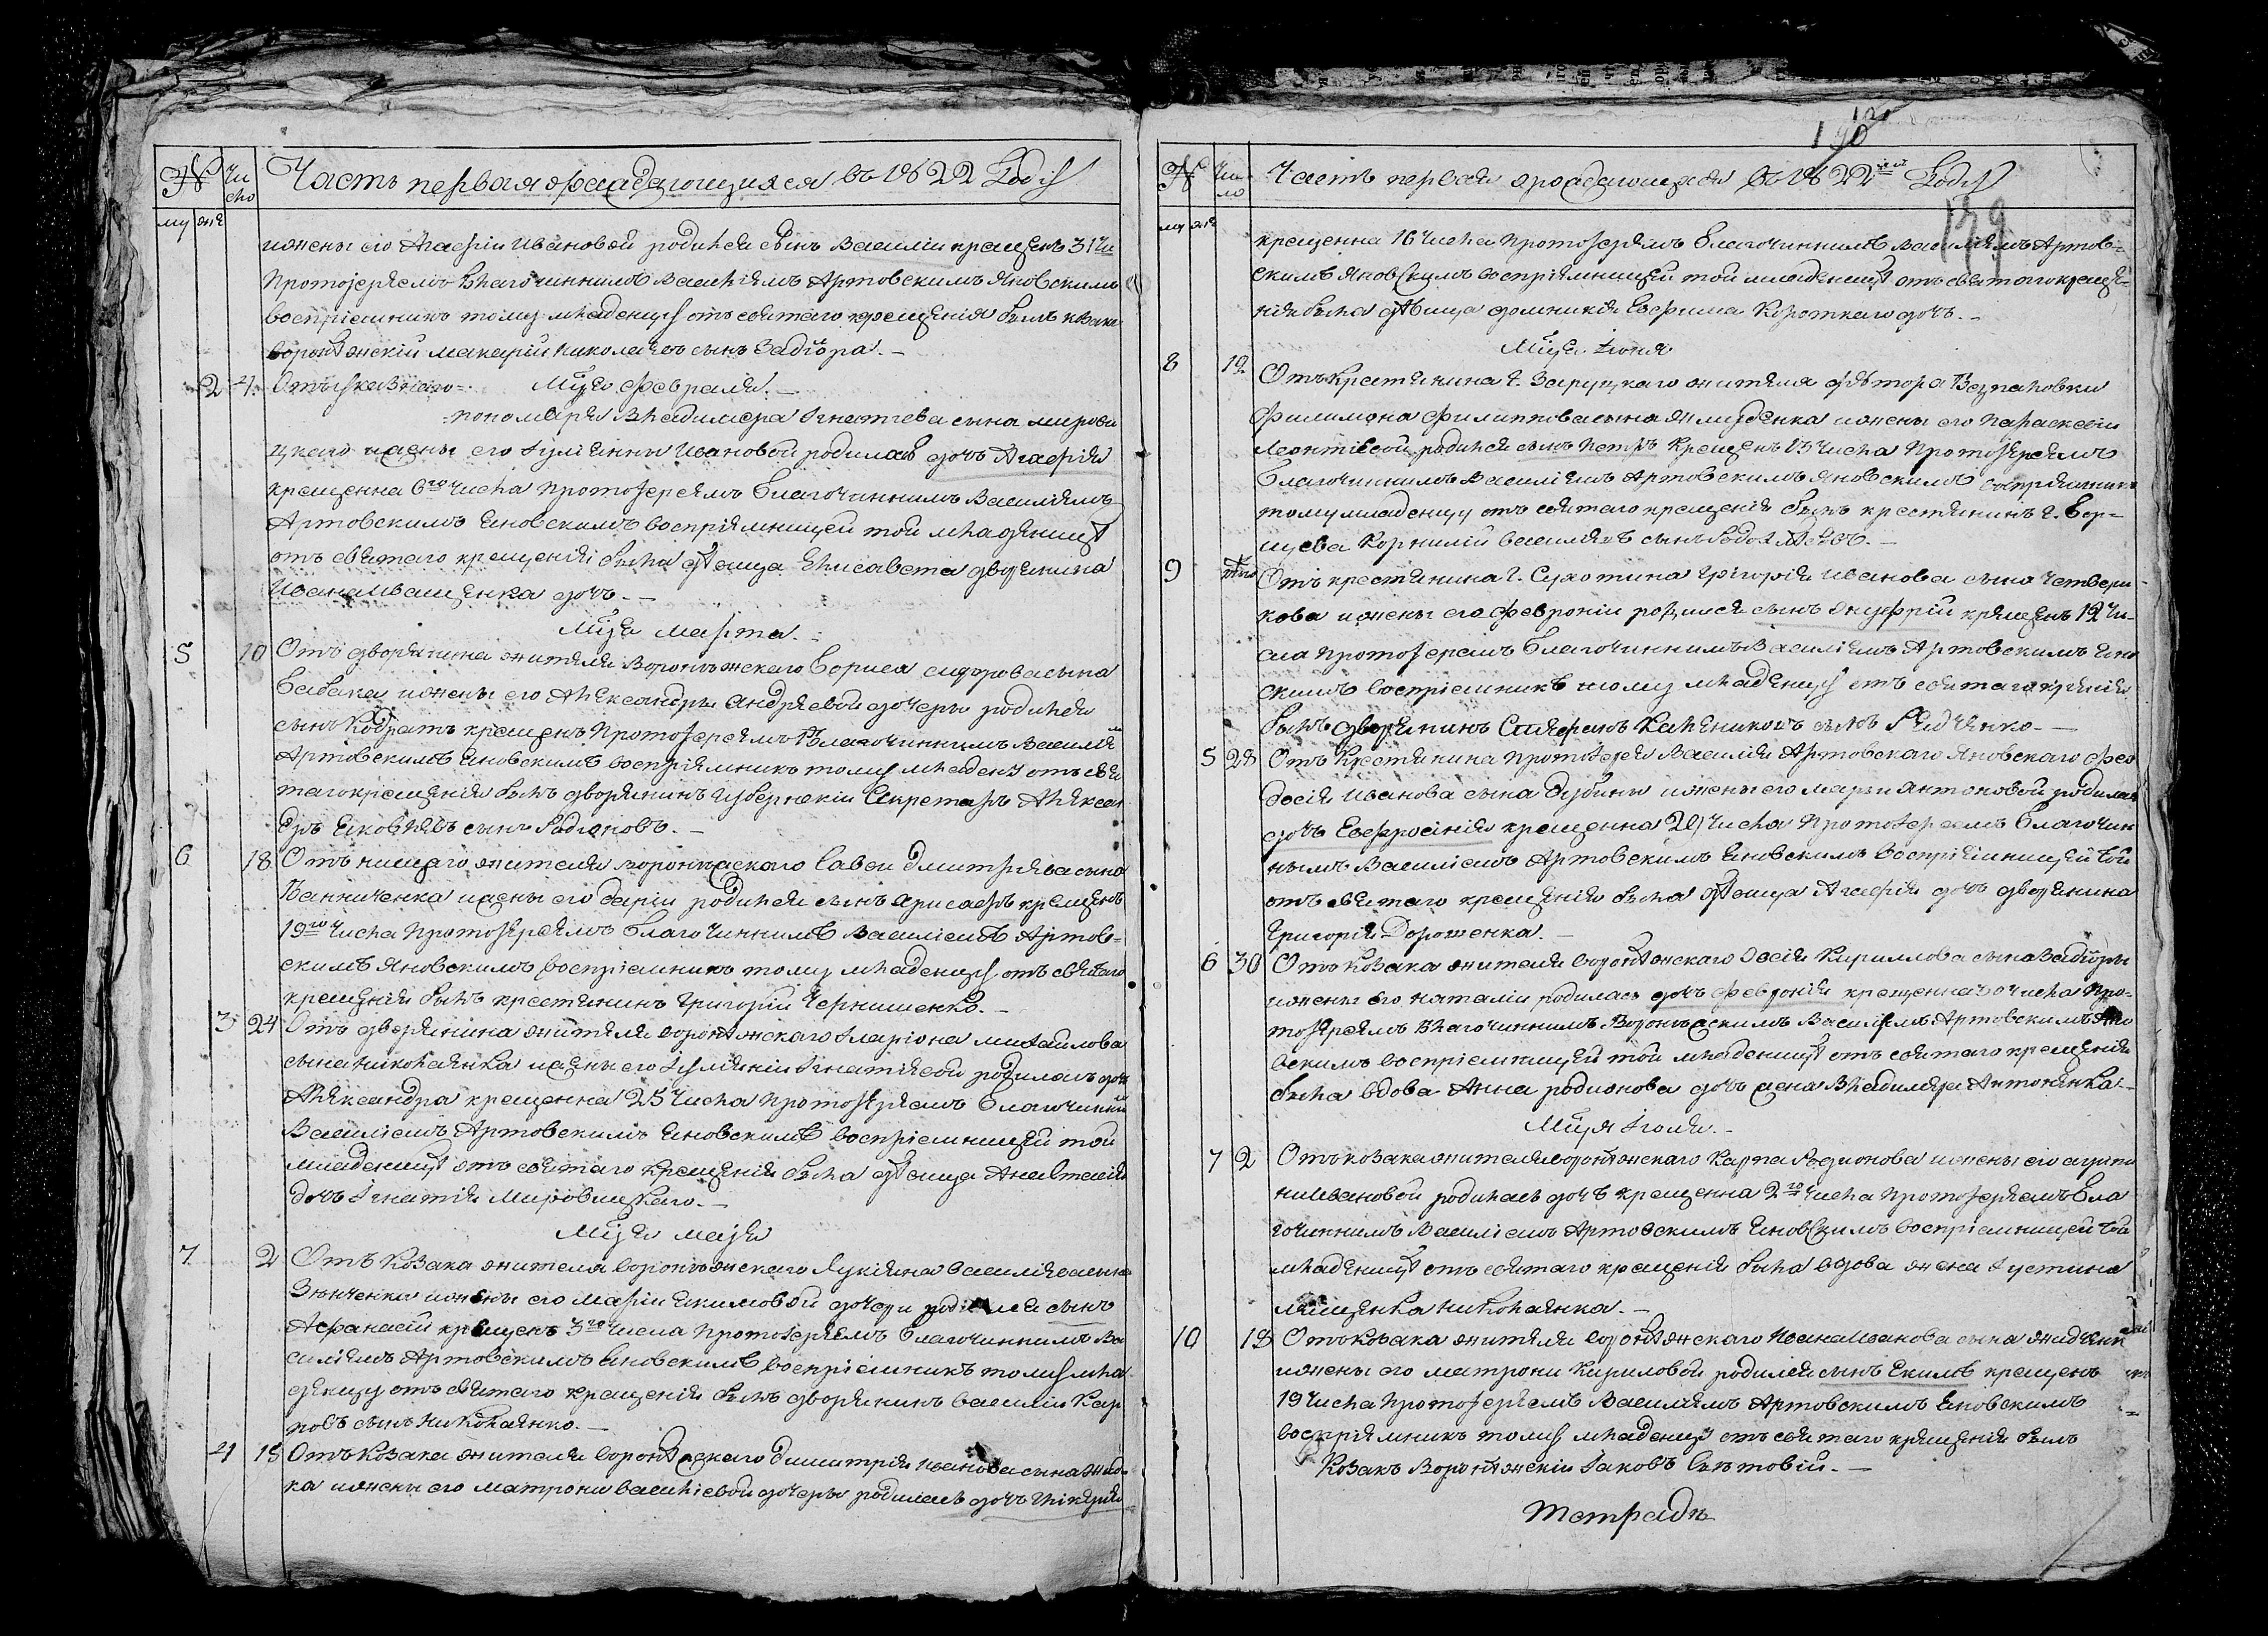 № Чи
сло
Часть первая о раждающихся въ 1822 Году
му же
и жены его Агафіи Ивановой родился сынъ Василій крещенъ 31 чи
Протоіереемъ Благочиннимъ Василіемъ Артовскимъ Яновскимъ
воспріемникъ тому младенцу отъ святаго крещенія былъ козакъ
воронѣжскій Макарій Николаевъ сынъ Задіора. –
2 4. Отъ Мцъа Февраля. –
пономаря Владимера Игнатіева сына мирови
цкаго и жены его Іуліянны Ивановой родилась дочь Агафія
крещенна 6го числа Протоіереемъ Благочиннимъ Василіемъ
Артовскимъ Яновскимъ воспріямницей той младеницѣ
отъ святаго крещенія была дѣвица Елисавета дворянина
Ивана Иващенка дочь. –
Мцъа Марта. –
5 10 Отъ дворянина жителя Воронѣжскаго Бориса Сидорова сына
Бабака и жены его Александры Андреевой дочеры родился
сынъ Кодратъ крещенъ Протоіереемъ Благочиннимъ Василіе
Артовскимъ Яновскимъ воспріямникъ тому младенц отъ свя
таго крещенія былъ дворянинъ Губернскій Секретарь Алексан
дръ Яковлевъ сынъ Радіоновъ. –
6 18 Отъ нищаго жителя воронѣжскаго Савы Дмитріева сына
Ванниченка и жены его Даріи родился сынъ Хрисанфъ крещенъ
19го числа Протоіереемъ Благочиннимъ Василіемъ Артов-
скимъ Яновскимъ воспріемникъ тому младенцу отъ святаго
крещенія былъ крестянинъ Григорій Чернишенко. –
3 24 Отъ дворянина жителя воронѣжскаго Иларіона Михайлова
сына Николаенка и жены его Іуліяніи Игнатіевой родилась дочь
Александра крещенна 25 числа Протоіереемъ Благочинни
Василіемъ Артовскимъ Яновскимъ воспріемницей той
младеницѣ отъ святаго крещенія была дѣвица Анастасія
дочь Игнатія Мировицкаго. –
Мцъа Маія
7 2 Отъ Козака жителя воронѣжскаго Лукіяна Василіева сына
Зѣнченка и жены его Маріи Якимовой дочери родился сынъ
Афанасій крещенъ 3го числа Протоіереемъ Благочиннимъ Ва
силіемъ Артовскимъ Яновскимъ воспріемникъ тому мла
денцу отъ святаго крещенія былъ дворянинъ Василій Кар
повъ сынъ Николаенко. –
4 15 Отъ Козака жителя воронѣжскаго Димитрія Иванова сына
ка и жены его Матроны Василіевой дочеры родилась дочь Гликерія
190
№ Чи-
ло
Часть первая о раждающихся въ 1822мъ Году
му же
179
крещенна 16 числа Протоіереемъ Благочиннимъ Василіемъ Артов-
скимъ Яновскимъ воспріямницей той младеницѣ отъ святаго креще-
нія была дѣвица Домникія Евфима Короткаго дочь. –
Мцъа Іюня
8 12 Отъ Крестянина Г. Заруцкаго жителя хутора Безпаловки
Филимона Филиппова сына и жены его Параскевіи
Леонтіевой родился сынъ Петръ крещенъ 13 числа Протоіереемъ
Благочиннимъ Василіемъ Артовскимъ Яновскимъ воспріямникъ
тому младенцу отъ святаго крещенія былъ крестянинъ Г. Бор-
щева Корнилій Василіевъ сынъ. –
9 Отъ крестянина Г. Сухотина Григорія Иванова сына Четвери-
кова и жены его Февроніи родился сынъ Онуфрій крещенъ 12 чи-
сла Протоіереемъ Благочиннимъ Василіемъ Артовскимъ Яно
скимъ воспріемникъ тому младенцу отъ святаго крещенія
былъ дворянинъ сынъ –
5 28 Отъ Крестянина Протоіерея Василія Артовскаго Яновскаго Фео
досія Иванова сына Дубины и жены его Маріи Антоновой родилас
дочь Евфросинія крещенна 29 числа Протоіереемъ Благочин
нымъ Василіемъ Артовскимъ Яновскимъ воспріемницей той
отъ святаго крещенія была дѣвица Агафія дочь дворянина
Григорія Дорошенка. –
6 30 Отъ Козака жителя воронѣжскаго Іосія Кириллова сына Задіоры
и жены его Наталіи родилась дочь Февронія крещенна 30 числа Про-
тоіереемъ Благочиннимъ Воронѣжскимъ Василіемъ Артовскимъ Яно
вскимъ воспріемницей той младеницѣ отъ святаго крещенія
была вдова Анна Родионова дочь жена Владимера Антоненка. –
Мцъя Іюля. –
7 2 Отъ козака жителя воронѣжскаго Карпа Родионова и жены его Агрипи
ни Ивановой родилась дочь крещенна 2го числа Протоіереемъ Бла
гочиннимъ Василіемъ Артовскимъ Яновскимъ воспріемницей той
младеницѣ отъ святаго крещенія была вдова жена Іустина
Николаенка. –
10 18 Отъ Козака жителя воронѣжскаго Ивана Иванова сына
и жены его Матрони Кириловой родился сынъ Екимъ крещенъ
19 числа Протоіереемъ Василіемъ Артовскимъ Яновскимъ
воспріямникъ тому младенцу отъ святаго крещенія былъ
Козакъ Воронѣжскій Іаковъ Свѣтовій. –
Тетрадь